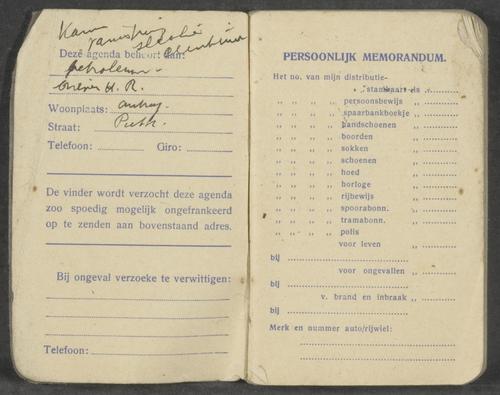 Deze agenda behoort aan:
petroleum
H. R.
Woonplaats:
Straat:
Telefoon: Giro:
De vinder wordt verzocht deze agenda
zoo spoedig mogelijk ongefrankeerd
op te zenden aan bovenstaand adres.
Bij ongeval verzoeke te verwittigen:
Telefoon:
PERSOONLIJK MEMORANDUM.
Het no. van mijn distributie-
stamkaart is „
„ „ „ persoonsbewijs „
„ „ „ spaarbankboekje „
„ „ „ handschoenen „
„ „ „ boorden „
„ „ „ sokken „
„ „ „ schoenen „
„ „ „ hoed „
„ „ „ horloge „
„ „ „ rijbewijs „
„ „ „ spoorabonn. „
„ „ „ tramabonn. „
„ „ „ polis
voor leven „
bij
voor ongevallen „
bij
v. brand en inbraak „
bij
Merk en nummer auto/rijwiel: